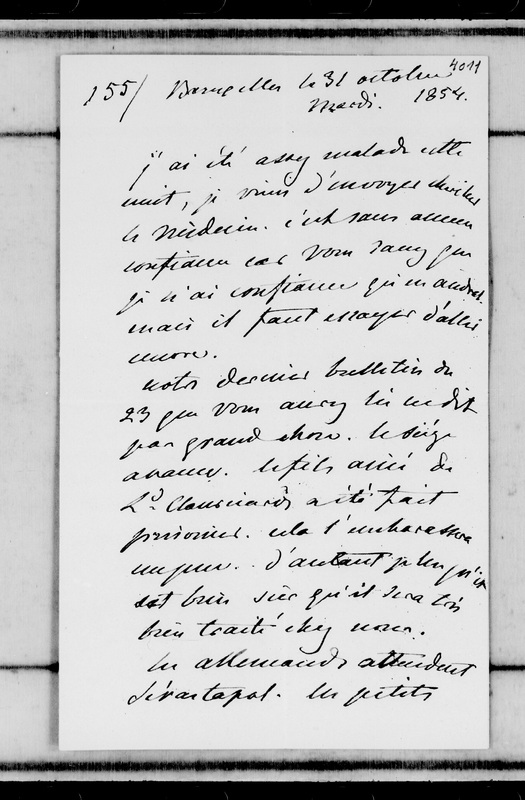 4011
155/ Bruxelles le 31 octobre
Mardi. 1854.
j'ai été assez malade cette
nuit, je viens d'envoyer chercher
le Médecin. c'est sans aucune
confiance car vous savez que
je n'ai confiance qu'en andral.
mais il faut essayer d'aller
encore.
notre dernier bulletin du
23 que vous aurez lu ne dit
pas grand chose. le siège
avance. le fils ainé de
Ld. Clanricarde a été fait
prisonnier. cela l'embarassera
un peu. d'autant plus qu'il
est bien sûr qu'il sera très
bien traité chez nous.
les allemands attendent
Sévastopol. les petits